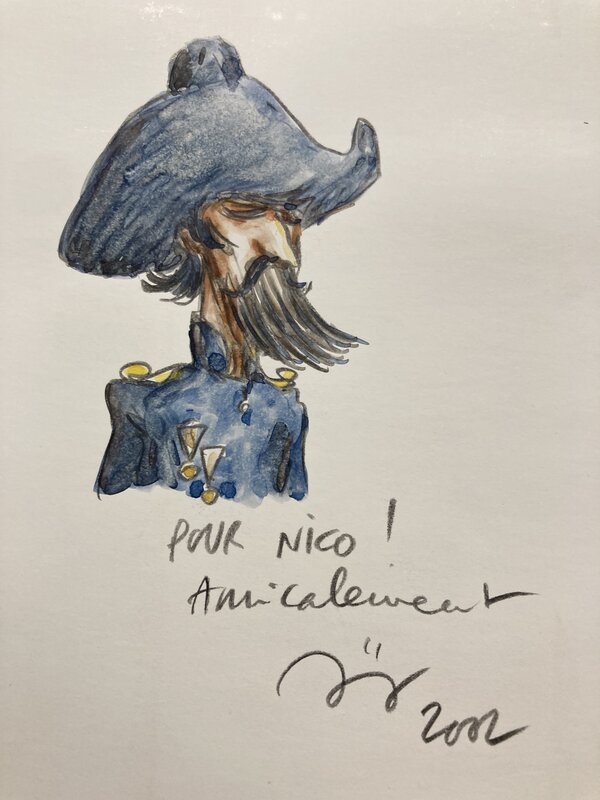 POUR NICO !
Amicalement
2002